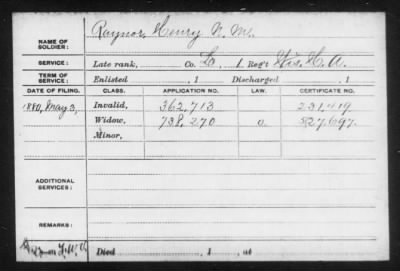 NAME OF SOLDIER: Raynor, Henry N. M.
SERVICE: Late rank, Co. L, 1 Reg't Wis. H. A.
TERM OF SERVICE: Enlisted , 1 Discharged , 1
DATE OF FILING. CLASS. APPLICATION NO. LAW. CERTIFICATE NO.
1880, May 3, Invalid, 362,713 231,419
Widow, 738,270 O. 527,697.
Minor,
ADDITIONAL SERVICES:
REMARKS:
Died , 1 , at